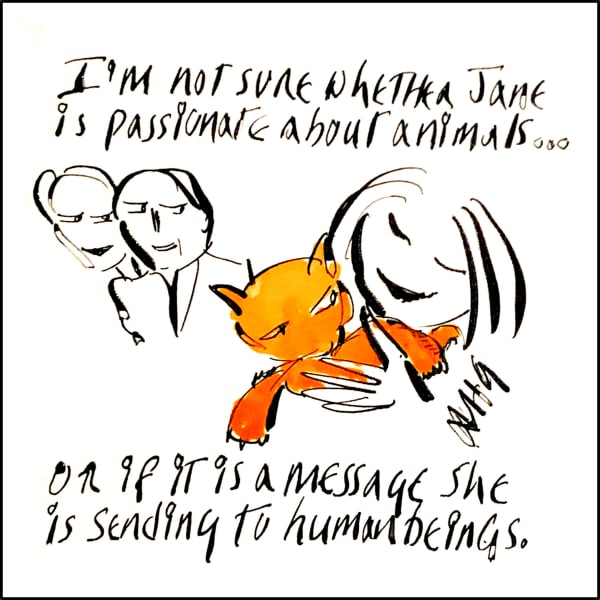 I'm not sure whether Jane
is passionate about animals...
or if it is a message she
is sending to human beings.